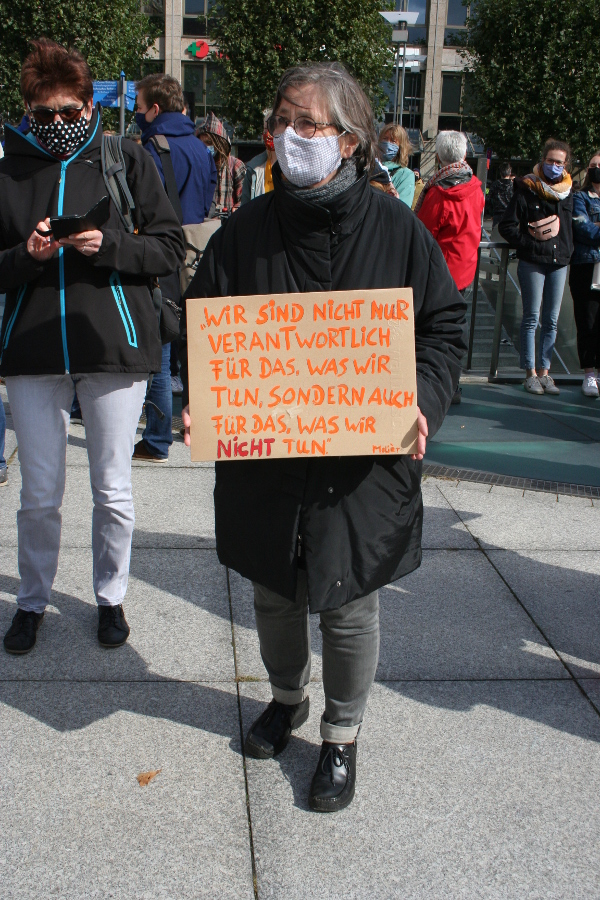 „WIR SIND NICHT NUR
VERANTWORTLICH
FÜR DAS, WAS WIR
TUN, SONDERN AUCH
FÜR DAS, WAS WIR
NICHT TUN." MOLIÈRE